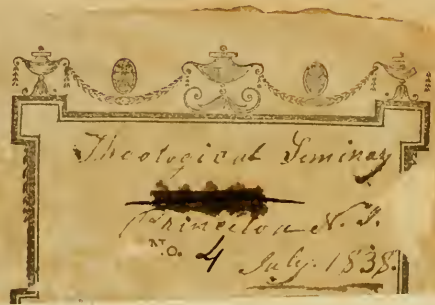 Theological Seminary
Princeton N. J.
No. 4 July. 1838.